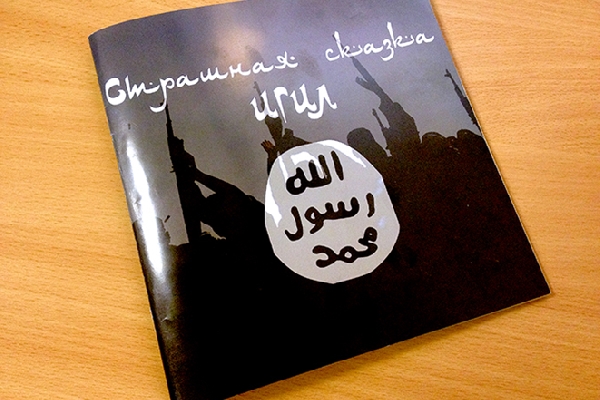 Страшная сказка
ИГИЛ
الله
رسول
محمد